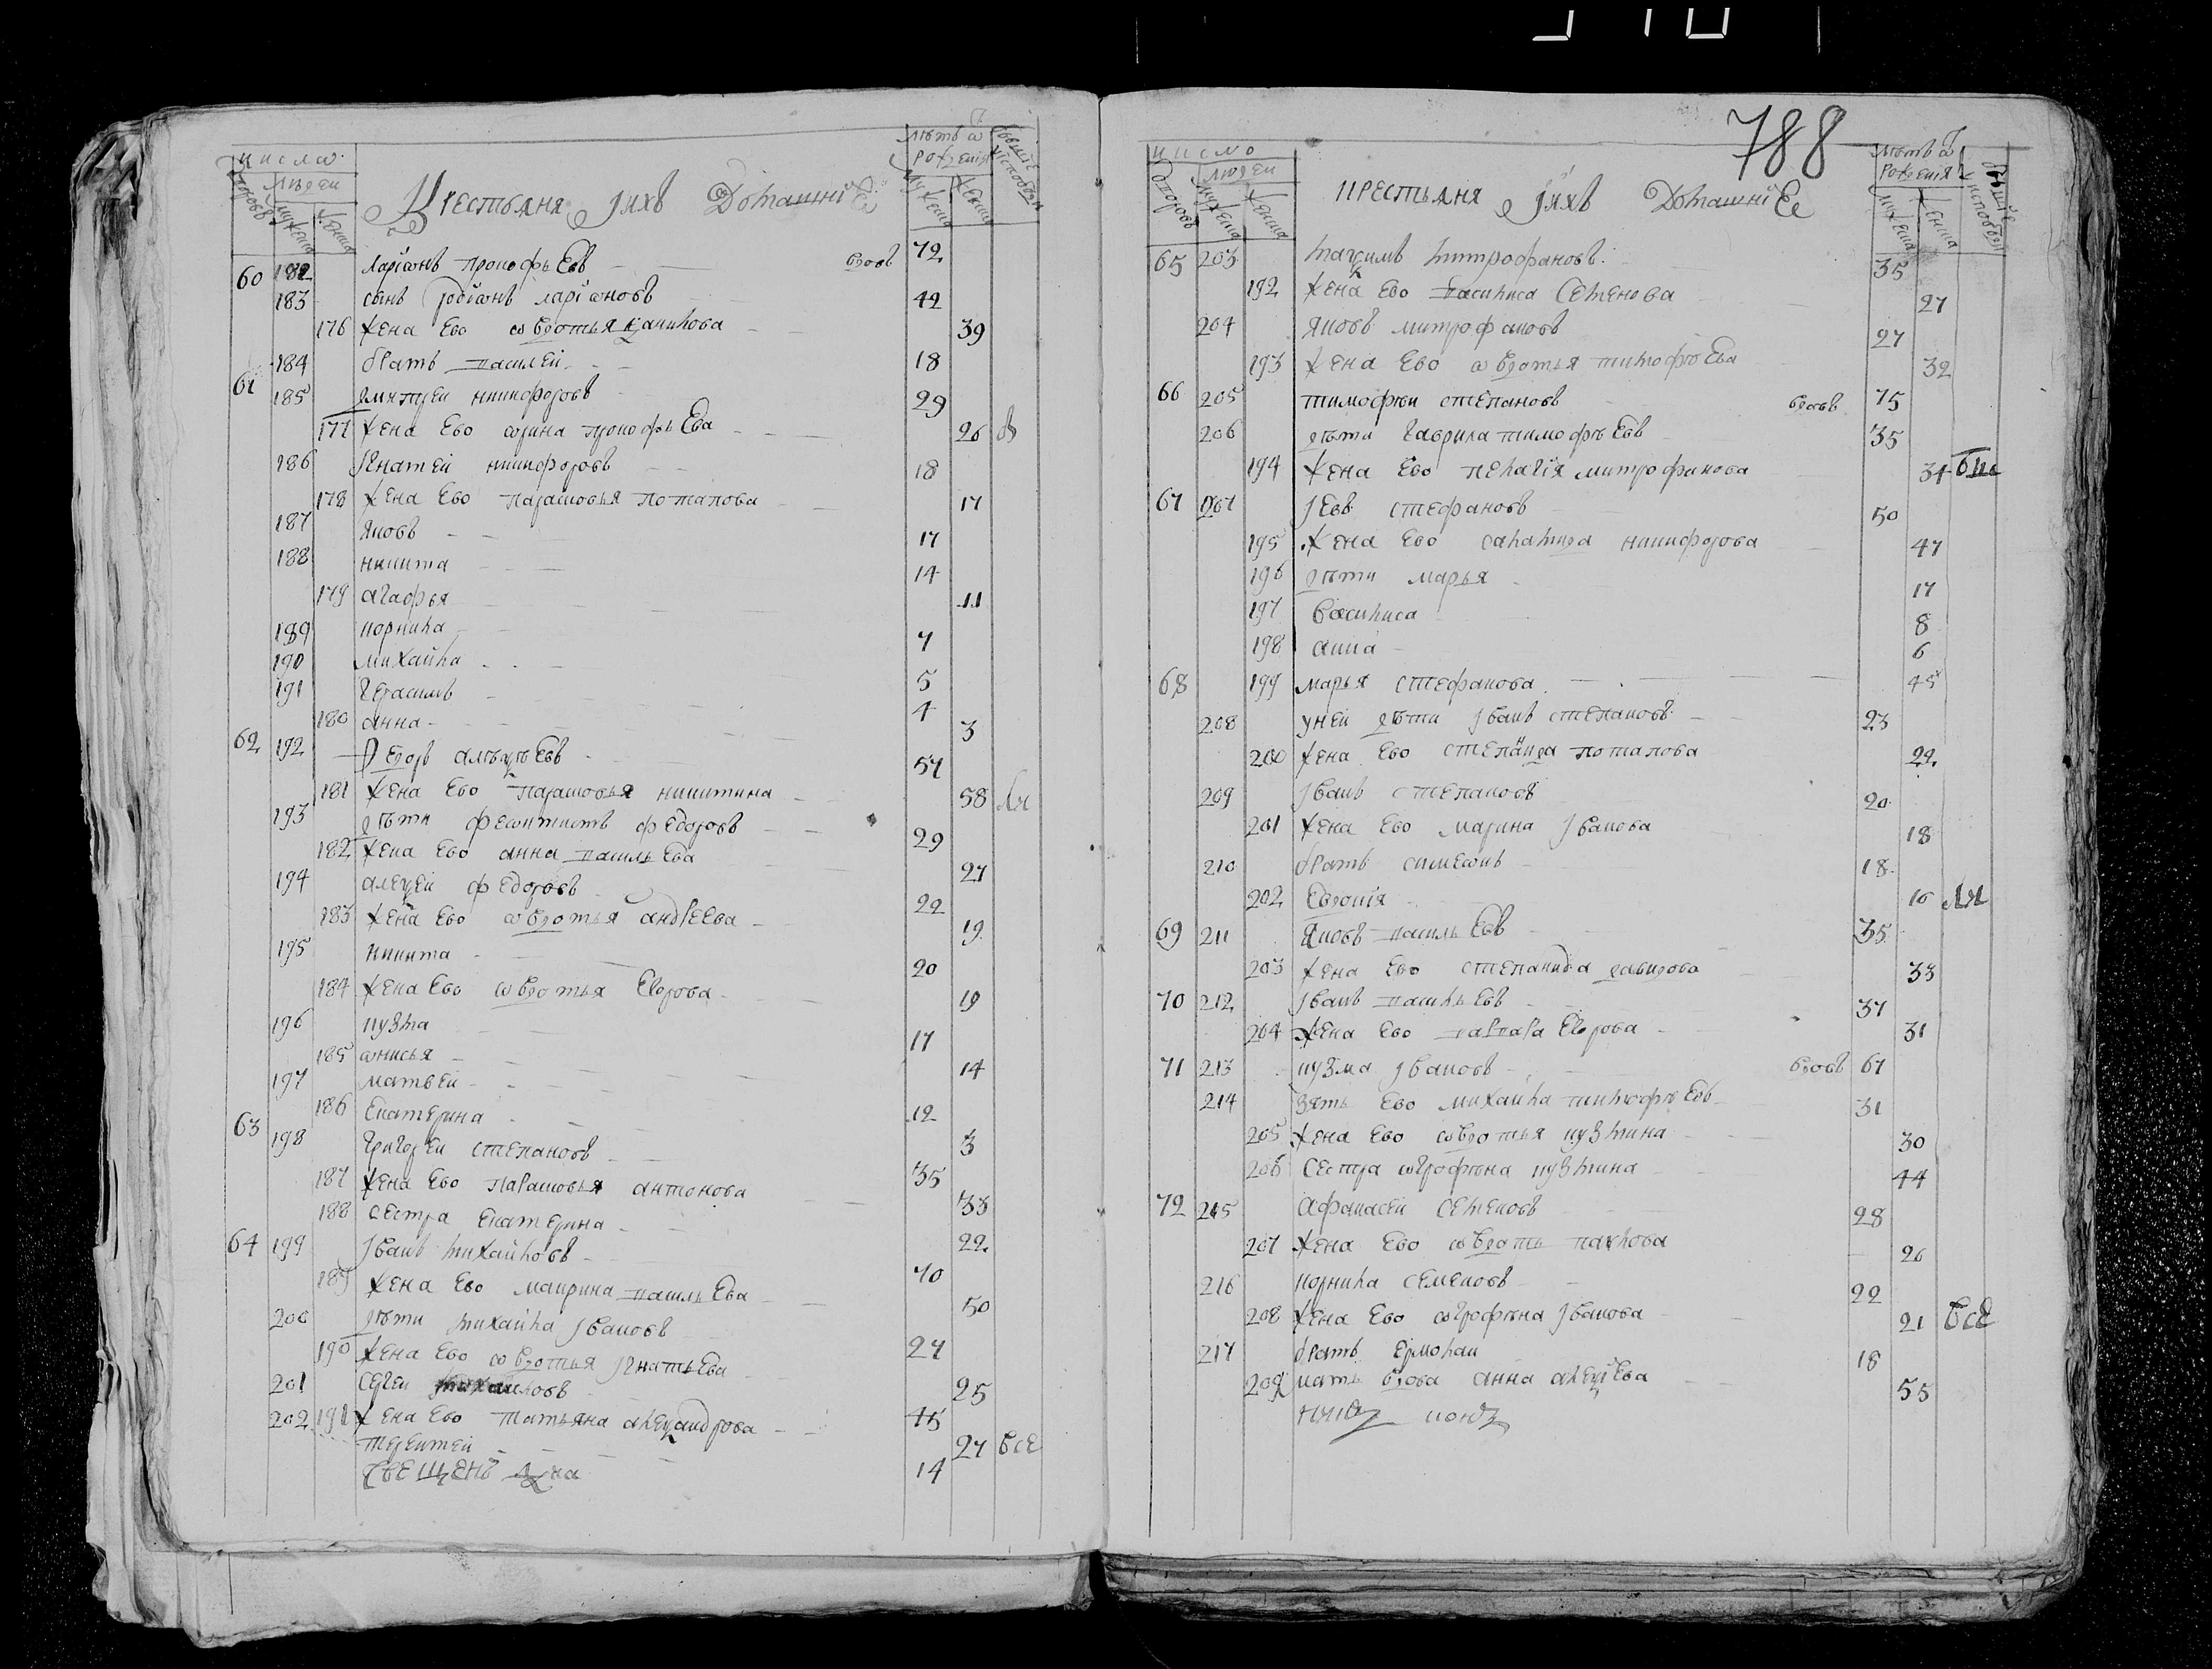 788
числа людей
дворовъ мужеска женска
Крестьяня Iихъ Домашнiе
лѣтъ ѿ рожденiя
мужеска женска
60 182 Ларiѡнъ Прокофьевъ вдовъ 72
183 сынъ Родiѡнъ Ларiѡновъ 42
176 жена ево ѡвдотья Данилова 39
184 братъ Василей 18
61 185 Дмитрей Никифоровъ 29
177 жена ево ѡрина Прокофьева 26
186 Iгнатей Никифоровъ 18
178 жена ево Парасковья Потапова 17
187 Яковъ 17
188 Никита 14
179 Агафья 11
189 Корнила 7
190 Михайла 5
191 Герасимъ 4
180 Анна 3
62 192 Ѳедоръ Алѣксѣевъ 57
181 жена ево Парасковья Никитина 58
193 дѣти Феѡктистъ Федоровъ 29
182 жена ево Анна Васильева 27
194 Алексей Федоровъ 22
183 жена ево ѡвдотья Андреева 19
195 Никита 20
184 жена ево ѡвдотья Егорова 19
196 Кузма 17
185 ѡнисья 14
197 Матвей 12
186 Екатерина 3
63 198 Григорей Степановъ 35
187 жена ево Парасковья Антонова 33
188 сестра Екатерина 22
64 199 Iванъ Михайловъ 70
189 жена ево Маврина Васильева 50
200 дѣти Михайла Iвановъ 27
190 жена ево ѡвдотья Iгнатьева 25
201 Сергей 15
202 191 жена ево Татьяна Александрова 27 все
Терентей 14
число людей
дворовъ мужеска женска
Крестьяня Iихъ Домашнiе
лѣтъ ѿ рожденiя
мужеска женска
65 203 Максимъ Митрофановъ 35
192 жена ево Василиса Семенова 27
204 Яковъ Митрофановъ 27
193 жена ево ѡвдотья Тимофѣева 32
66 205 Тимофѣи Степановъ вдовъ 75
206 дѣти Гаврила Тимофѣевъ 35
194 жена ево Пелагiя Митрофанова 34
67 207 Iевъ Стефановъ 50
195 жена ево Саламида Никифорова 47
196 дѣти Марья 17
197 Василиса 8
198 Анна 6
68 199 Марья Стефанова 45
208 у ней дѣти Iванъ Степановъ 23
200 жена ево Степанида Потапова 22
209 Iванъ Степановъ 20
201 жена ево Марина Iванова 18
210 братъ Симеѡнъ 18
202 Евдокiя 16
69 211 Яковъ Васильевъ 35
203 жена ево Степанида Давидова 33
70 212 Iванъ Васильевъ 37
204 жена ево Варвара Егорова 31
71 213 Кузма Iвановъ вдовъ 67
214 зять ево Михайла Тимофѣевъ 31
205 жена ево ѡвдотья Кузмина 30
206 сестра ѡгрофѣна Кузмина 44
72 215 Афанасей Семеновъ 28
207 жена ево ѡвдоть Павлова 26
216 Корнила Семеновъ 22
208 жена ево ѡгрофѣна Iванова 21 все
217 братъ Ермолаи 18
209 мать вдова Анна Алексѣева 55